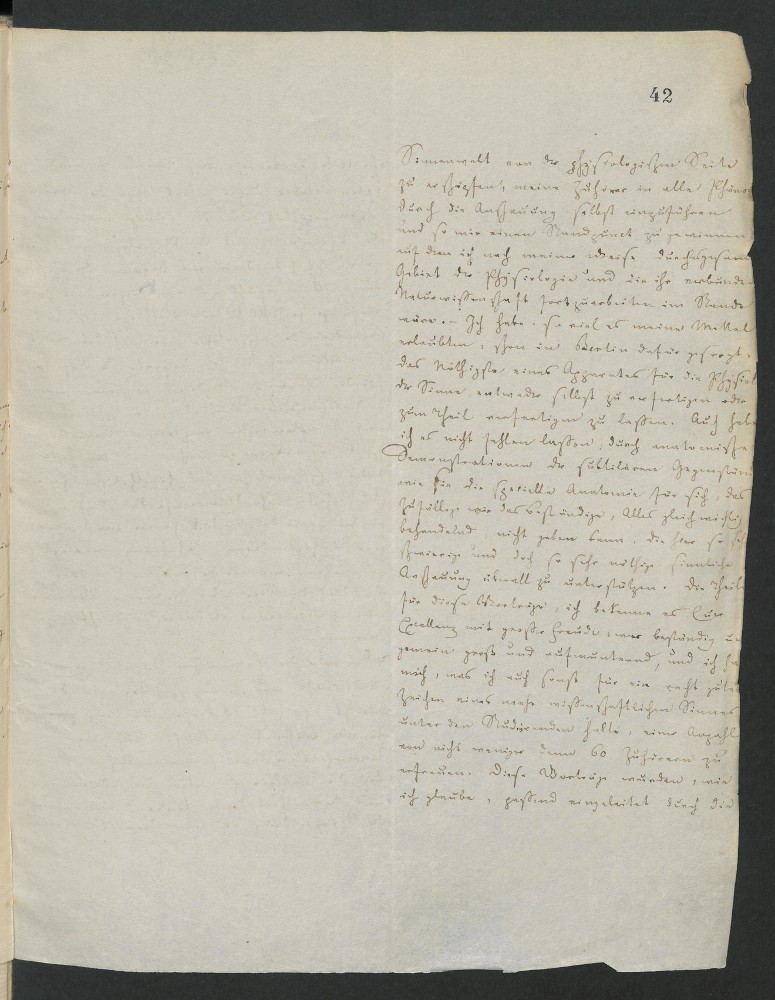 42
Sinnenwelt von der physiologischen Seite
zu erschöpfen, meine Zuhörer in alle Phäno
durch die Anschauung selbst einzuführen
und so mir einen Standpunct zu gewinnen
auf dem ich nach meiner Weise durch
Gebiet der Physiologie und die ihr verbunden
Naturwissenschaft fortzuarbeiten im Stande
wäre. – Ich habe, so viel es meine Mittel
erlaubten, schon in Berlin dafür gesorgt,
das Nöthigste eines Apparates für die Physiol
der Sinne entweder selbst zu verfertigen oder
zum Theil verfertigen zu lassen. Auch habe
ich es nicht fehlen lassen, durch anatomische
Demonstrationen der subtileren Gegenstän
wie sie die specielle Anatomie für sich, das
Zufällige wie das beständige, Alles gleich wichtig
behandelnd, nicht geben kann, die hier so
schwierige und doch so sehr nöthige sinnliche
Anschauung überall zu unterstützen. Die Theil
für diese Vorträge, ich bekenne es Euer
Excellenz mit großer Freude, war beständig un
gemein groß und aufmunternd, und ich ha
mich, was ich auch sonst für ein recht gutes
Zeichen eines wahr wissenschaftlichen Sinnes
unter den Studirenden halte, einer Anzahl
von nicht weniger denn 60 Zuhörern zu
erfreuen. Diese Vorträge wurden, wie
ich glaube, passend eingeleitet durch die